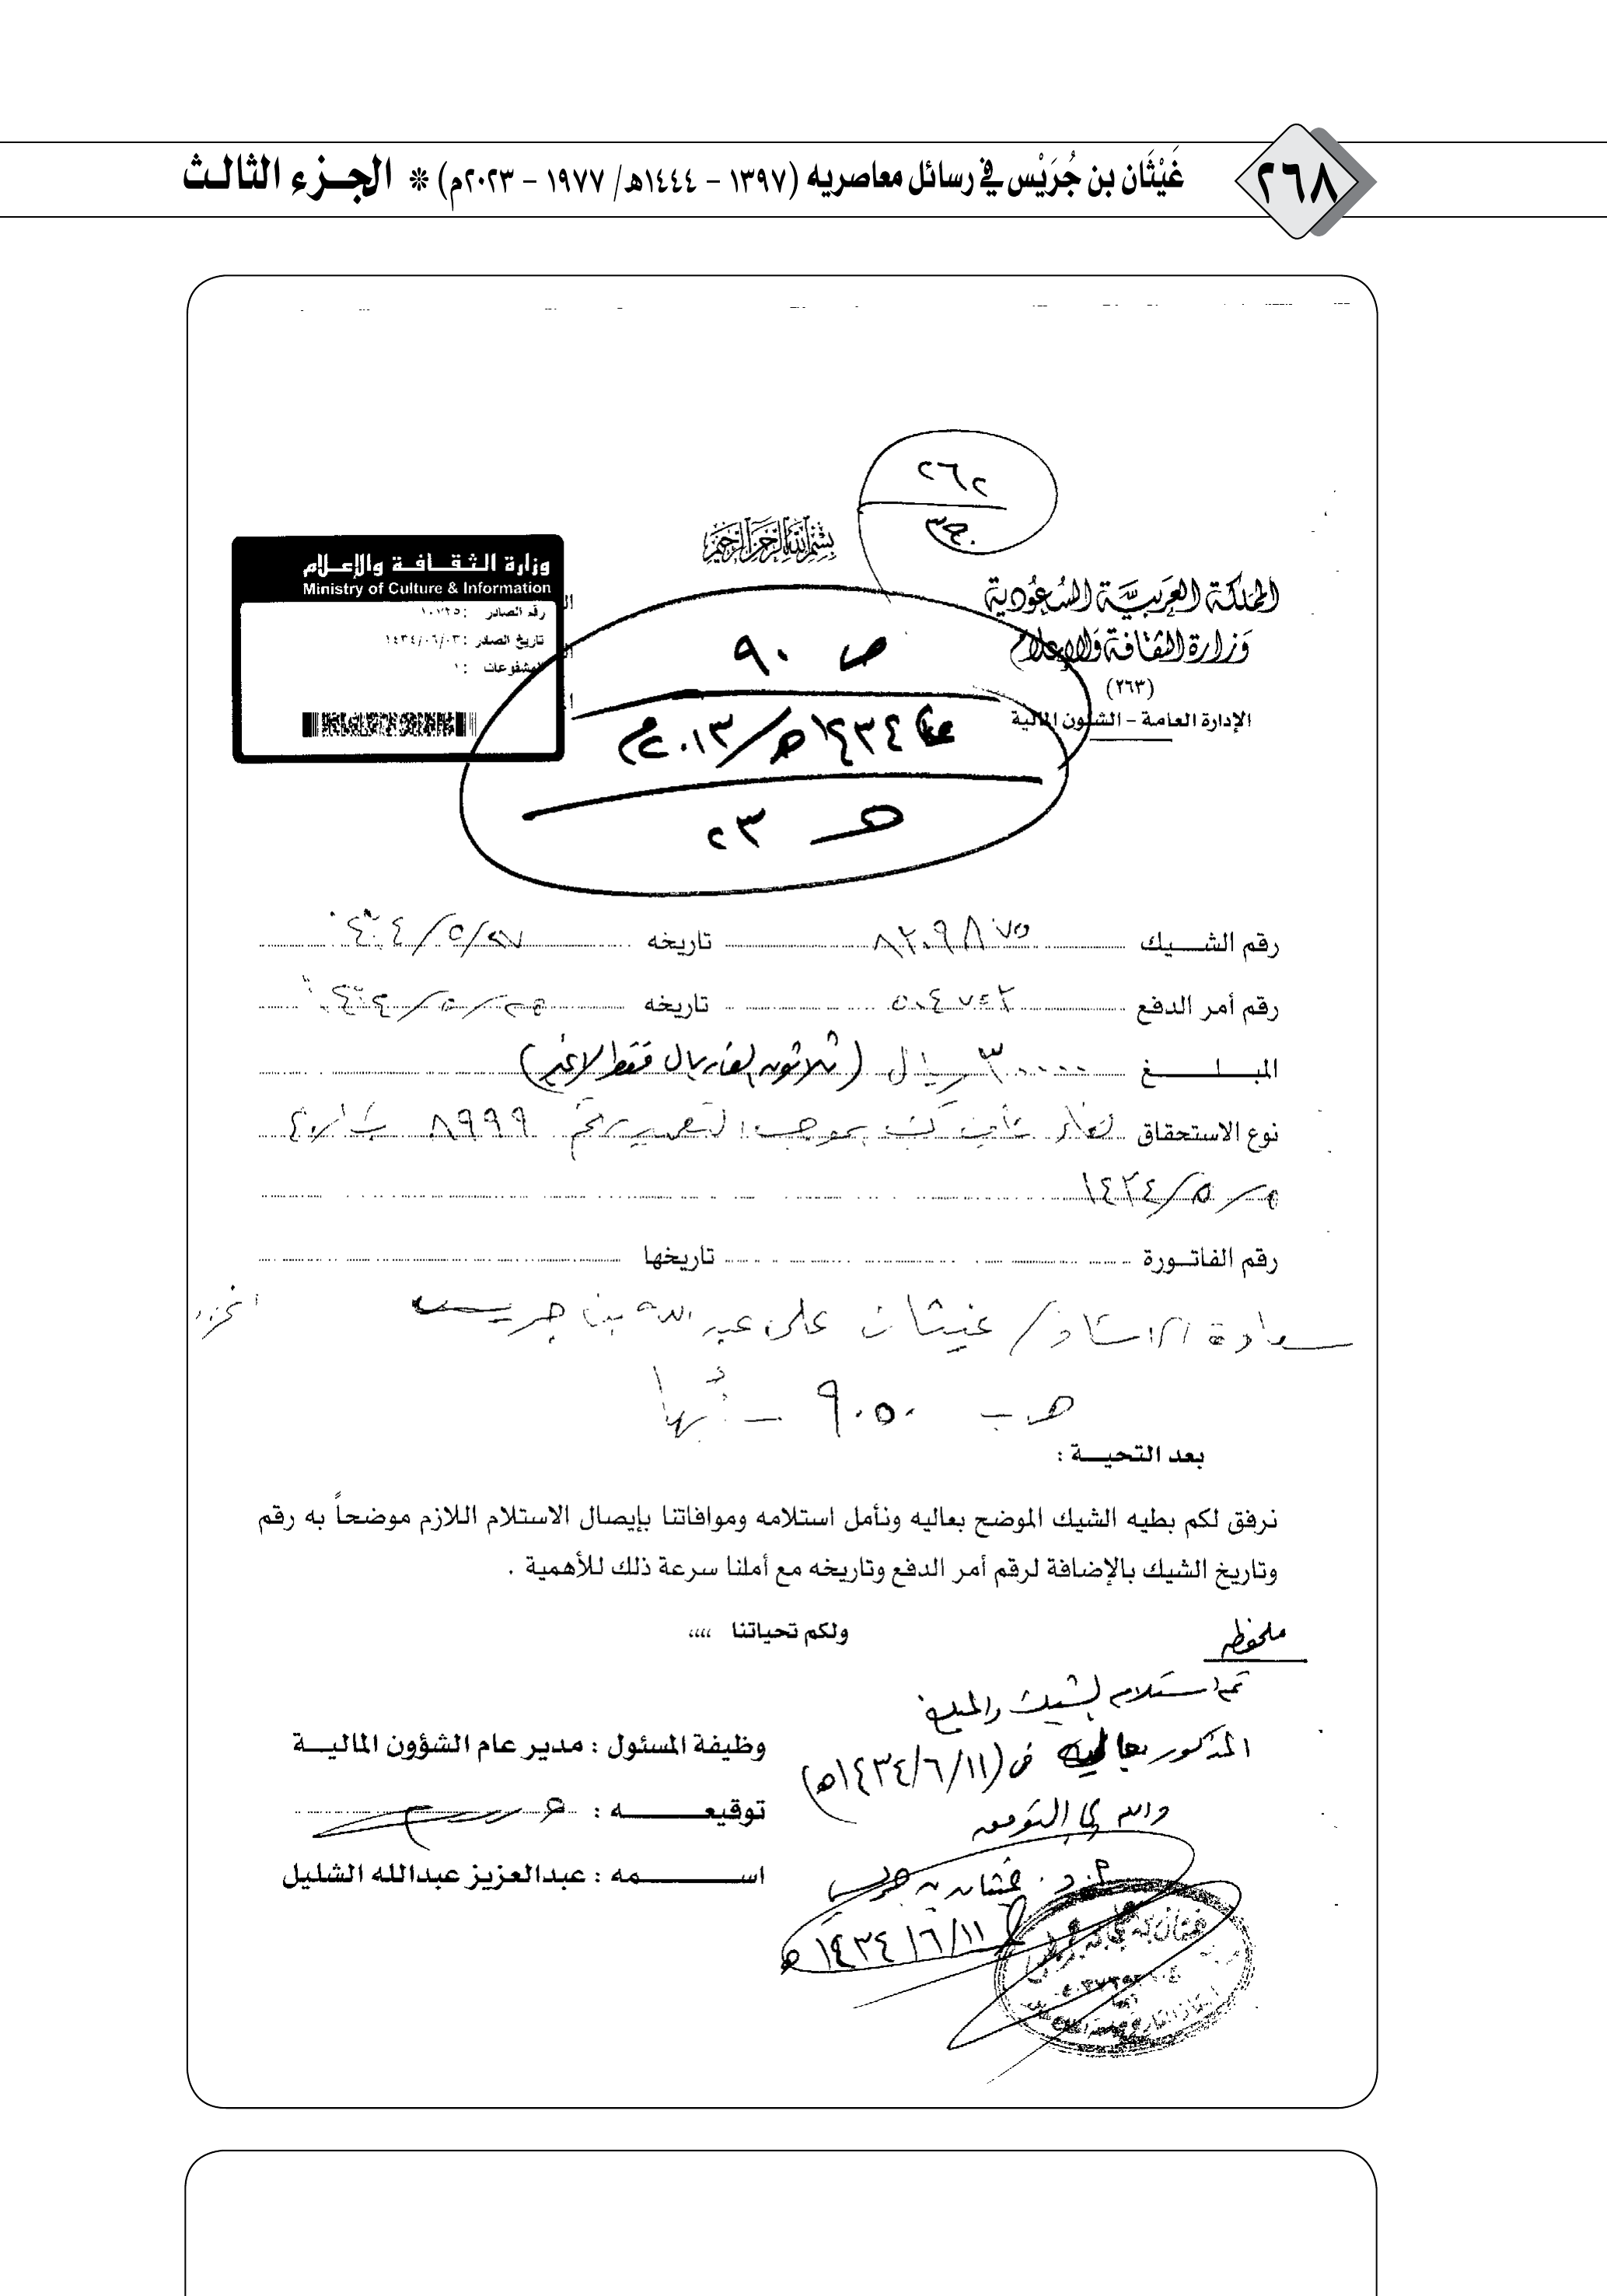 ٢٦٨
غَيْثَان بن جُرَيْس في رسائل معاصريه (١٣٩٧ - ١٤٤٤هـ/ ١٩٧٧ - ٢٠٢٣م) * الجزء الثالث
٢٦٢
ج٣
بسم الله الرحمن الرحيم
المملكة العربية السعودية
وزارة الثقافة والإعلام
(٢٦٣)
الإدارة العامة - الشئون المالية
وزارة الثقافة والإعلام
Ministry of Culture & Information
رقم الصادر : ١٠٧٢٥
تاريخ الصدر : ١٤٣٤/٠٦/٠٣
المشفوعات : ١
ص ٩٠
١٤٣٤هـ/٢٠١٣م
هـ ٢٣
رقم الشيك ٨٢٠٩٨٧٥ تاريخه
رقم أمر الدفع ٥٠٤٧٤٢ تاريخه
المبلغ ٣٠٠٠٠ ريال (ثلاثون الف ريال فقط لا غير)
نوع الاستحقاق لقاء تأمين كتب بموجب التعميد رقم ٨٩٩٩
رقم الفاتورة تاريخها
سعادة الاستاذ/ غيثان علي عبدالله بن جريس
ص ب ٩٠٥٠ - أبها
بعد التحية :
نرفق لكم بطيه الشيك الموضح بعاليه ونأمل استلامه وموافاتنا بإيصال الاستلام اللازم موضحاً به رقم
وتاريخ الشيك بالإضافة لرقم أمر الدفع وتاريخه مع أملنا سرعة ذلك للأهمية .
ولكم تحياتنا ،،،،
ملحوظه
تم استلام الشيك والمبلغ
المذكور بعاليه في (١٤٣٤/٦/١١هـ)
والله ولي التوفيق
أ.د. غيثان بن جريس
١٤٣٤/٦/١١هـ
وظيفة المسئول : مدير عام الشؤون المالية
توقيعه :
اسمه : عبدالعزيز عبدالله الشليل